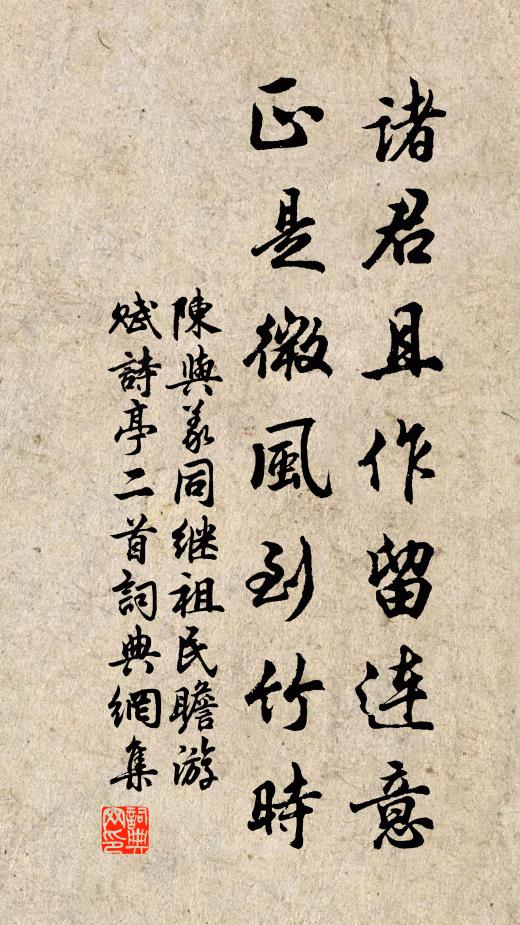 诸君且作留连意
正是微風到竹時
陳與義同继祖民瞻游
赋詩亭二首詞典網集
詞典
网印